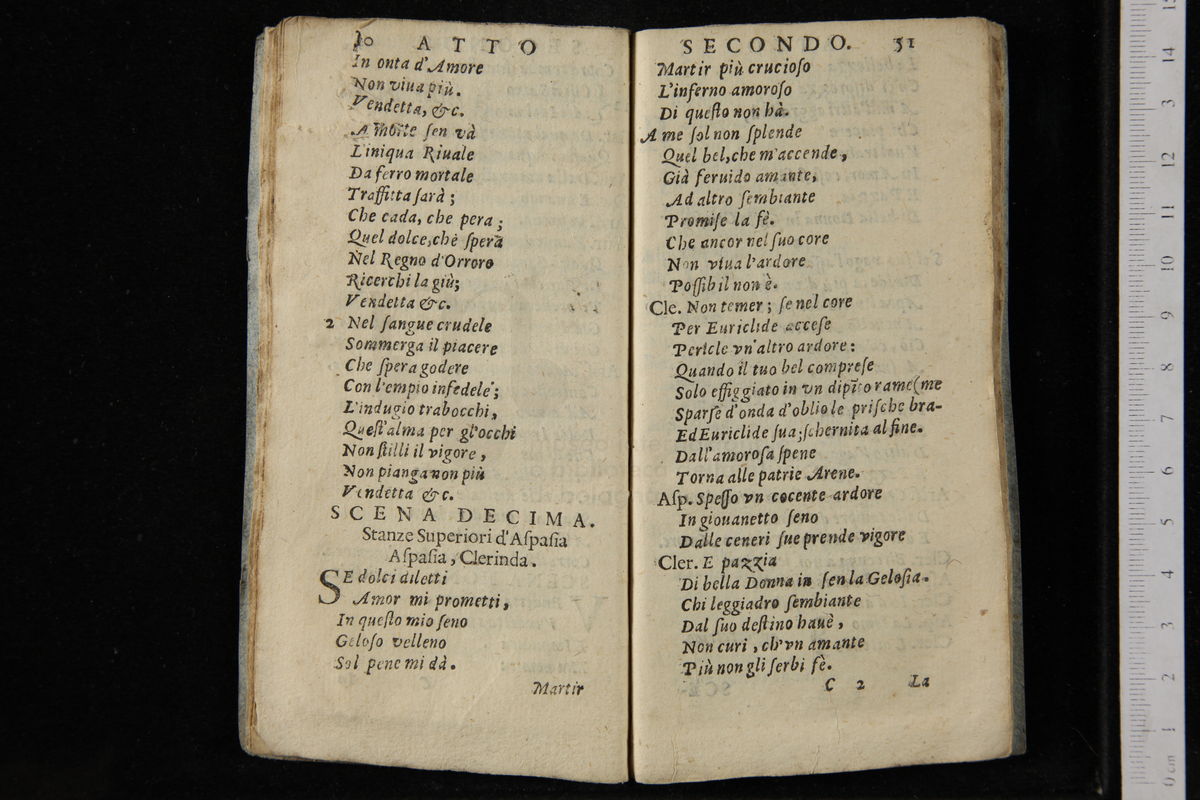 50 ATTO
In onta d'Amore
Non viua più.
Vendetta, &c.
A morte ſen và
L'iniqua Riuale
Da ferro mortale
Traffitta ſarà;
Che cada, che pera;
Quel dolce, che ſpera
Nel Regno d'Orrore
Ricerchi la giù;
Vendetta &c.
2 Nel ſangue crudele
Sommerga il piacere
Che ſpera godere
Con l'empio infedele;
L'indugio trabocchi,
Queſt'alma per gl'occhi
Non ſtilli il vigore,
Non pianga non più
Vendetta &c.
SCENA DECIMA.
Stanze Superiori d'Aſpaſia
Aſpaſia, Clerinda.
SE dolci diletti
Amor mi prometti,
In queſto mio ſeno
Geloſo velleno
Sol pene mi dà.
Martir
SECONDO. 51
Martir più crucioſo
L'inferno amoroſo
Di queſto non hà.
A me ſol non ſplende
Quel bel, che m'accende,
Già feruido amante,
Ad altro ſembiante
Promiſe la fè.
Che ancor nel ſuo core
Non viua l'ardore
Poſſibil non è.
Cle. Non temer; ſe nel core
Per Euriclide acceſe
Pericle vn'altro ardore:
Quando il tuo bel compreſe
Solo effiggiato in vn dipīto rame (me
Sparſe d'onda d'oblio le priſche bra-
Ed Euriclide ſua; ſchernita al fine.
Dall'amoroſa ſpene
Torna alle patrie Arene.
Aſp. Speſſo vn cocente ardore
In giouanetto ſeno
Dalle ceneri ſue prende vigore
Cler. E pazzia
Di bella Donna in ſen la Geloſia.
Chi leggiadro ſembiante
Dal ſuo deſtino hauè,
Non curi, ch'vn amante
Più non gli ſerbi fè.
C 2 La